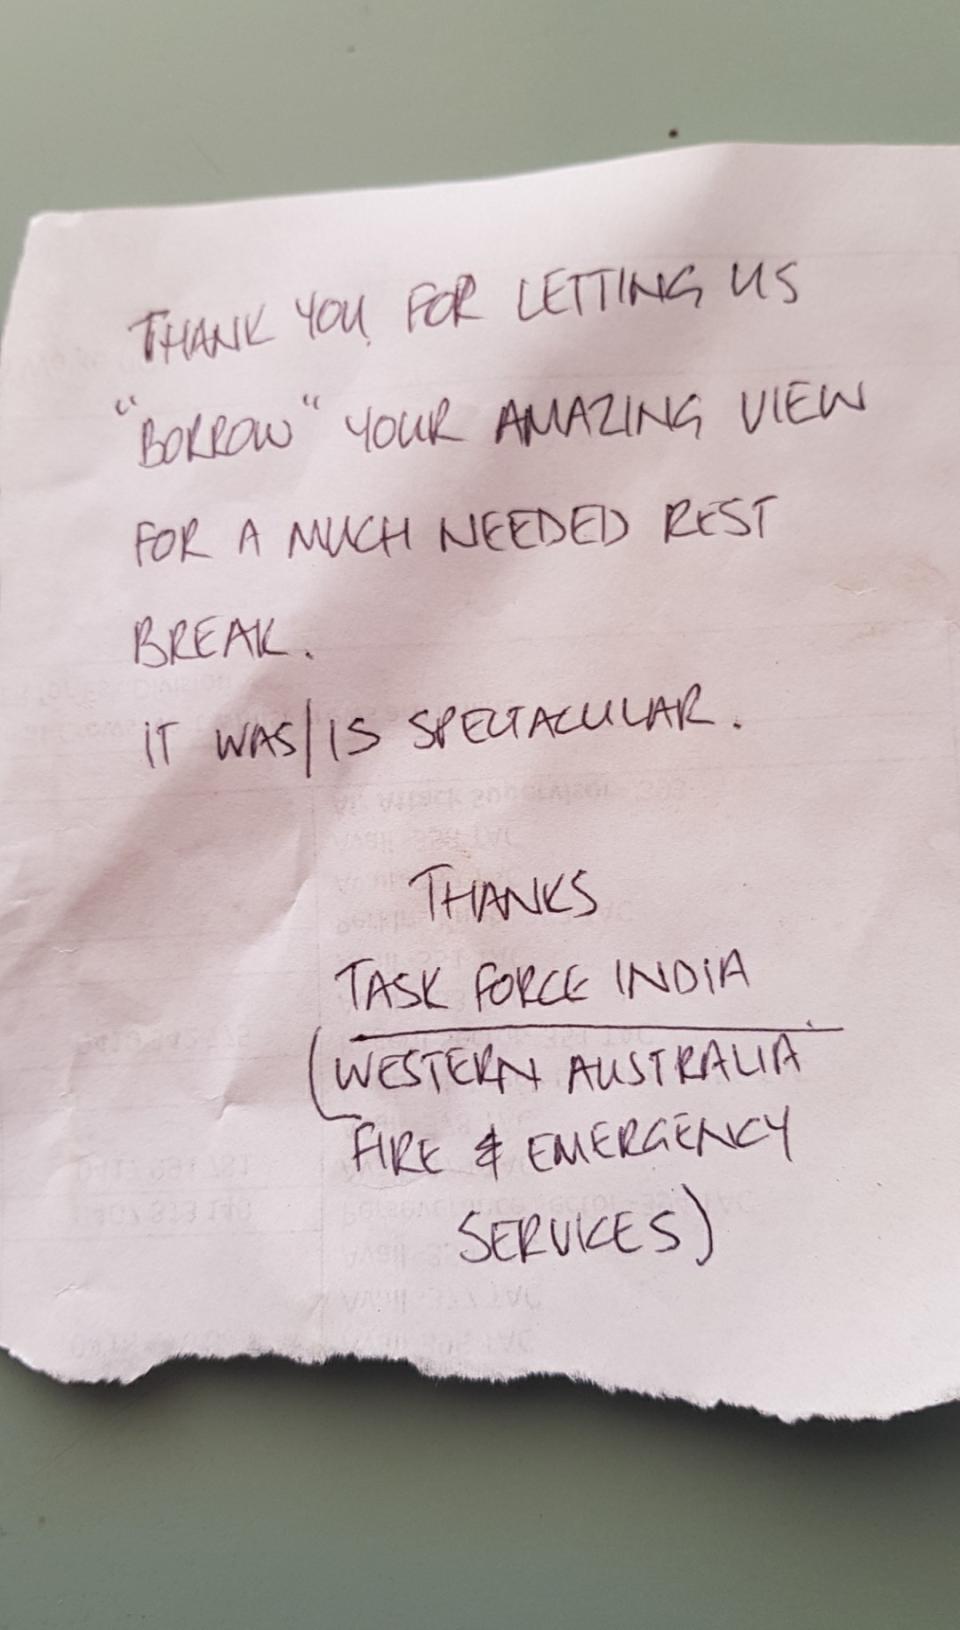 THANK YOU FOR LETTING US
"BORROW" YOUR AMAZING VIEW
FOR A MUCH NEEDED REST
BREAK.
IT WAS/IS SPECTACULAR.
THANKS
TASK FORCE INDIA
(WESTERN AUSTRALIA
FIRE & EMERGENCY
SERVICES)